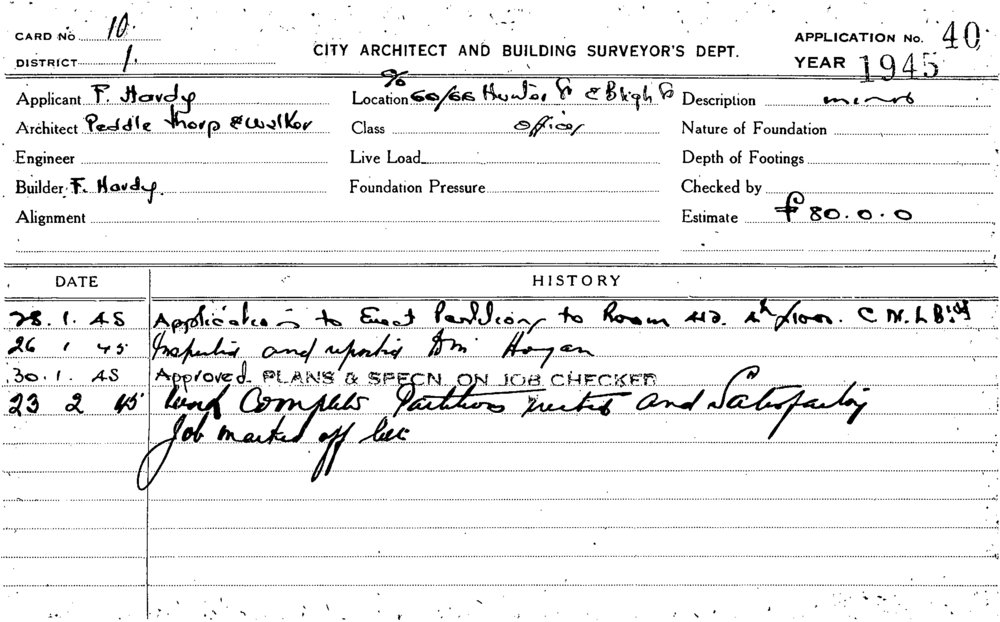 CARD No 10.
DISTRICT 1.
CITY ARCHITECT AND BUILDING SURVEYOR'S DEPT.
APPLICATION No. 40
YEAR 1945
Applicant F. Hardy
Location 60/66 Hunter St & Bligh St
Description minor
Architect Peddle Thorp & Walker
Class offices
Nature of Foundation
Engineer
Live Load
Depth of Footings
Builder F. Hardy.
Foundation Pressure
Checked by
Alignment
Estimate £80.0.0
DATE
HISTORY
1. 45 Application to Erect Partitions to Room 412. 4th floor. C M L Bld
26 1 45 Inspected and reported Hogan
30.1. 45 Approved. PLANS & SPECN. ON JOB CHECKED
23 2 45 Complete Partitions erected and Satisfactory
Job marked off